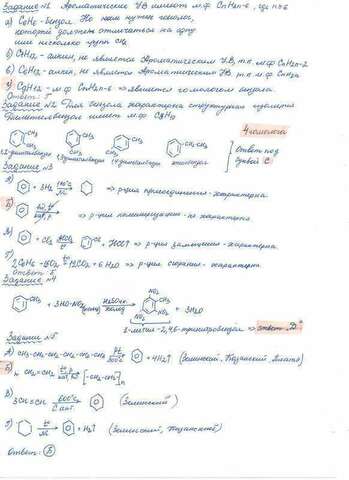 Задание №1 Ароматические УВ имеют м.ф CnH2n-6, где n≥6
а) C6H6-бензол. Но нам нужен гомолог,
который должен отличаться на одну
или несколько групп CH2
б) алкин, не является Ароматическим УВ, т.к м.ф CnH2n-2
в) алкен, не является Ароматическим УВ, т.к м.ф CnH2n
г) C9H12 - м.ф CnH2n-6 => является гомологом бензола.
Ответ: Г
Задание №2 Для бензола характерна структурная изомерия
имеет м.ф C8H10
CH3 CH3
CH3 CH3 CH3
CH3
CH2-CH3
4 гомолога
1,2-диметилбензол 1,3-диметилбензол 1,4-диметилбензол этилбензол
Ответ под
буквой С
Задание №3
А) + 3H2 => р-ция присоединения-характерна
Б) => р-ция полимеризации-не характерна
В) + Cl2 + HCl => р-ция замещения-характерна
Г) 2C6H6+15O2 12CO2 + 6H2O => р-ция горения-характерна
Ответ: Б
Задание №4
CH3 + 3HO-NO2 H2SO4 + 3H2O
CH3 NO2 NO2 NO2
2-метил-2,4,6-тринитробензол => ответ "Д"
Задание №5
А) CH3-CH2-CH2-CH2-CH2-CH3 Pt 300°C + 4H2↑ (Зелинский, Казанский, Платэ)
Б) n CH2=CH2 [-CH2-CH2-]n
В) 3CH≡CH 600°C C акт. (Зелинский)
Г) Ni + H2↑ (Зелинский, Казанский)
Ответ: Б